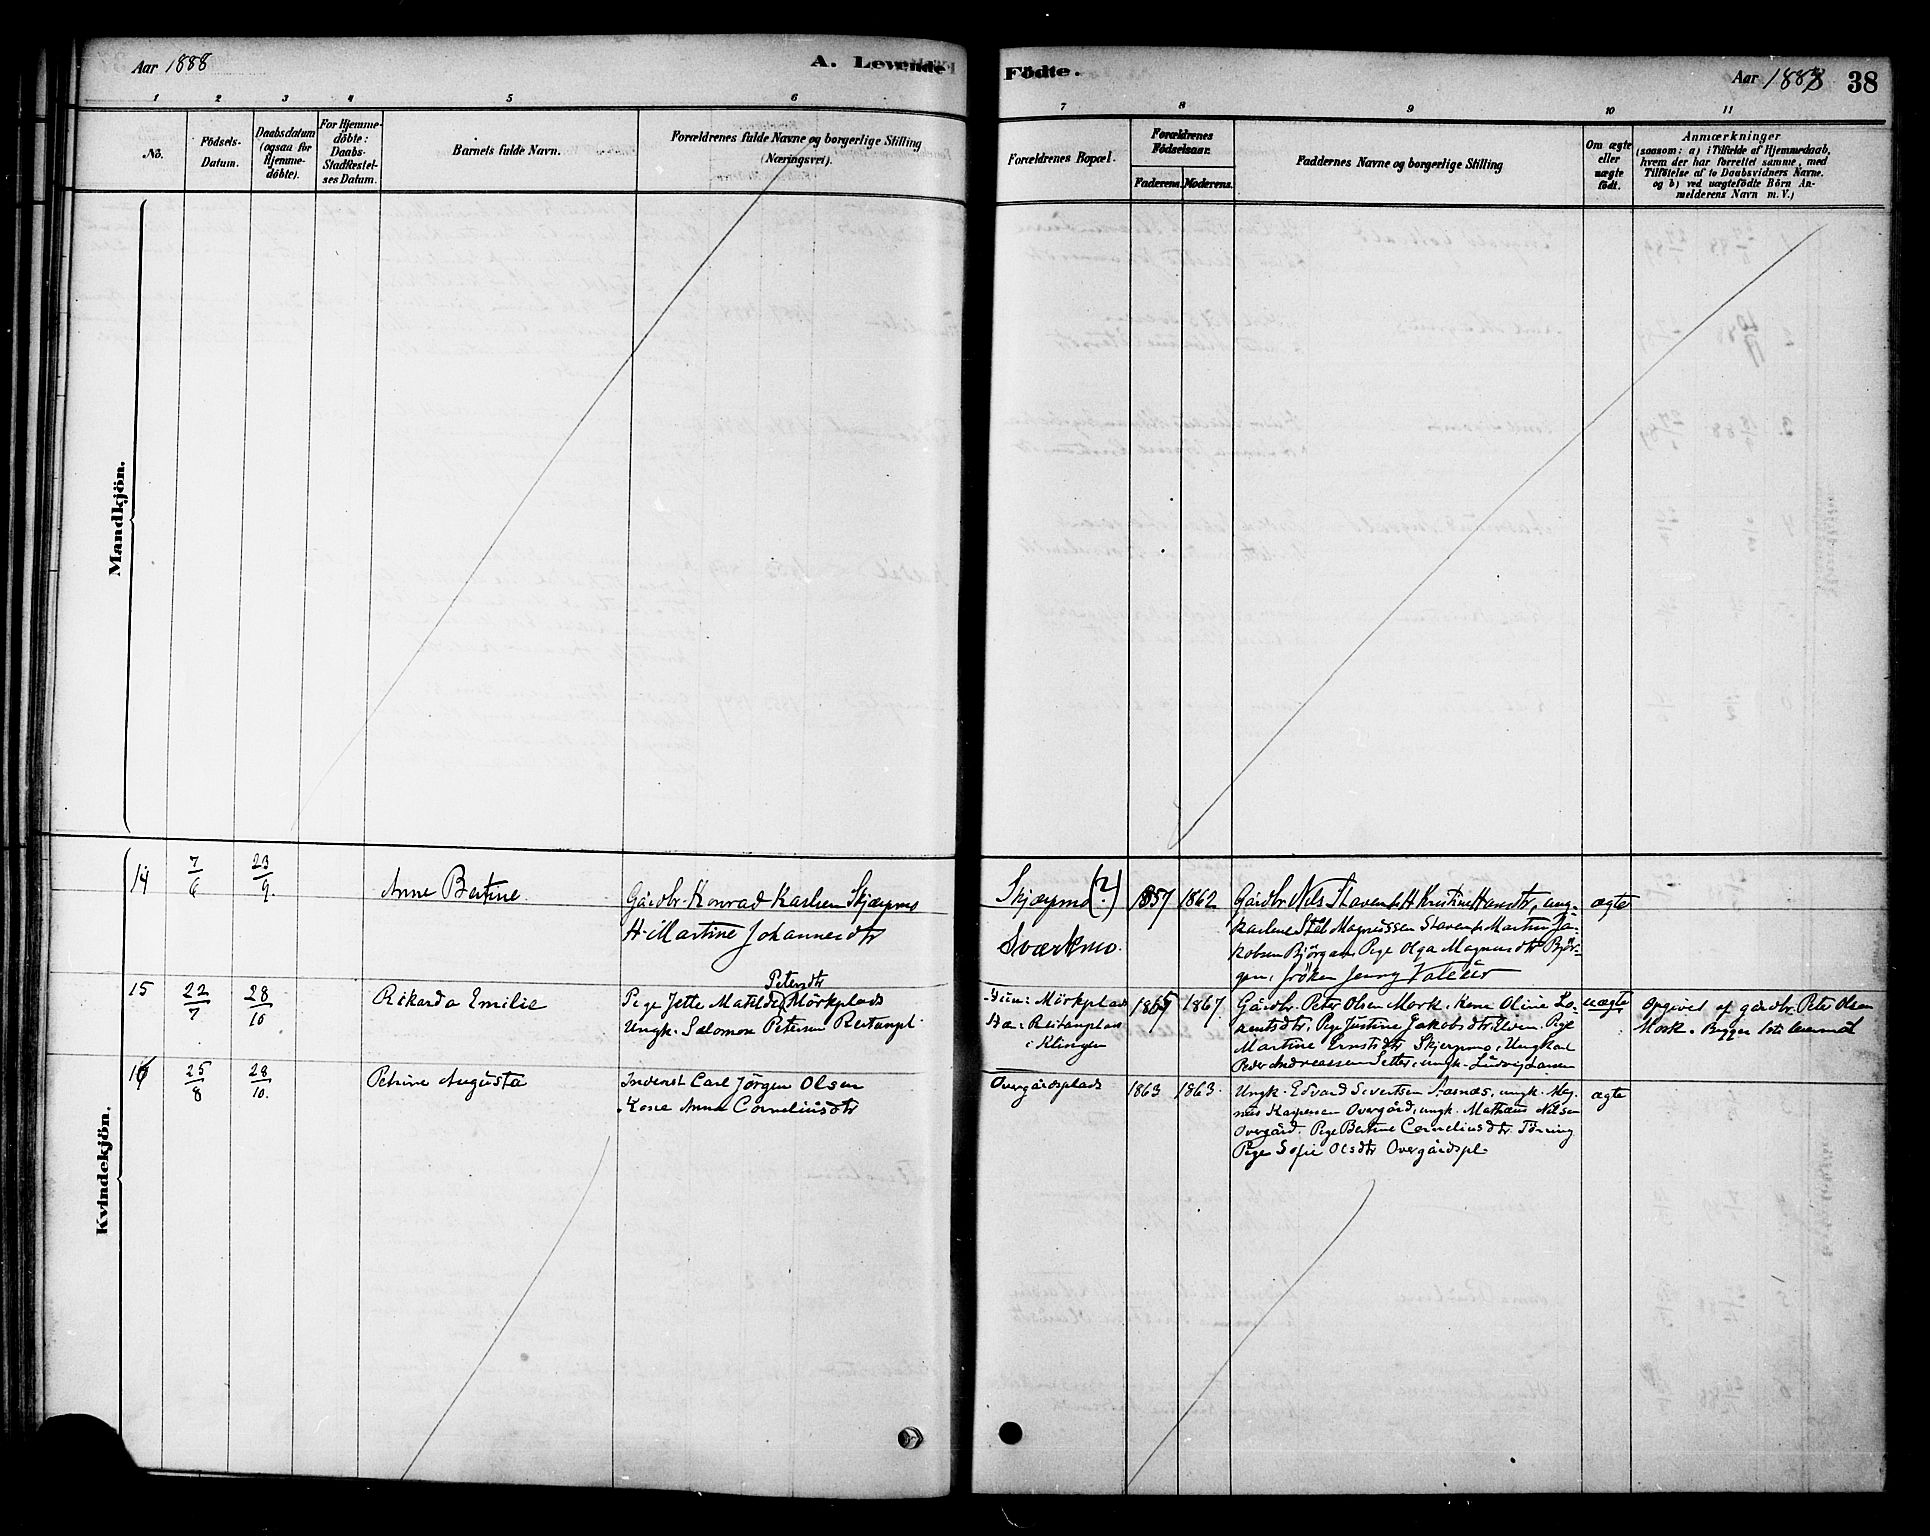 Aar 1888
A. Levende
Födte.
Aar 1888
38
1 2 3 4 5 6
7 8 9 10 11
No.
Födsels-
Datum.
Daabsdatum
(ogsaa for
Hjemme-
döbte).
For Hjemme-
döbte:
Daabs-
Stadfestel-
ses Datum.
Barnets fulde Navn.
Forældrenes fulde Navne og borgerlige Stilling
(Næringsvei).
Forældrenes Bopæl.
Forældrenes
Födselsaar.
Faderens. Moderens.
Faddernes Navne og borgerlige Stilling
Om ægte
eller
uægte
født.
Anmærkninger
(saasom: a) i Tilfælde af Hjemmedaab,
hvem der har forrettet samme, med
Tilföielse af to Daabsvidners Navne,
og b) ved uægtefödte Börn An-
melderens Navn m. V.)
Mandkjön.
Kvindekjön.
14
7/6
23/9
Anne Bertine
Gårdbr. Konrad Karlsen Skjærpmo
H. Martine Johannesdtr
Skjærpmo (?)
Sværkmo.
1857
1862
Gårdbr Nils Staven H Kristine Hansdtr, ung-
Magnussen Staven Martin Ja-
kobsen Bjørgan, Pige Olga Magnusdtr Bjør-
gan, frøken Jenny Valeur
ægte
15
22/7
28/10
Rikarda Emilie
Petersdtr
Pige Jette Matilde Mörkplads
Ungk. Salomon Petersen Reitanpl.
Hun: Mörkplads
Han: Reitanplads
i Klingen
1865
1867.
Gårdbr. Peter Olsen Mork. Kone Oline La-
Pige Justine Jakobsdtr Elven. Pige
Martine Ernstsdtr Skjerpmo, Ungkarl
Peder Andreassen Setter, ungk. Ludvig Larsen
uægte
Opgivet af gårdbr. Peter Olsen
Mork. Begges 1ste leiermål
16
25/8
28/10.
Petrine Augusta
Inderst Carl Jörgen Olsen
Kone Anna Corneliusdtr
Overgårdsplads
1863
1863.
Ungk. Edvard Sivertsen Aasnæs, ungk. Mag-
nus Kaspersen Overgård, ungk. Mathæus Nilsen
Overgård. Pige Bertine Corneliusdtr Törring
Pige Sofie Olsdtr Overgårdspl
ægte